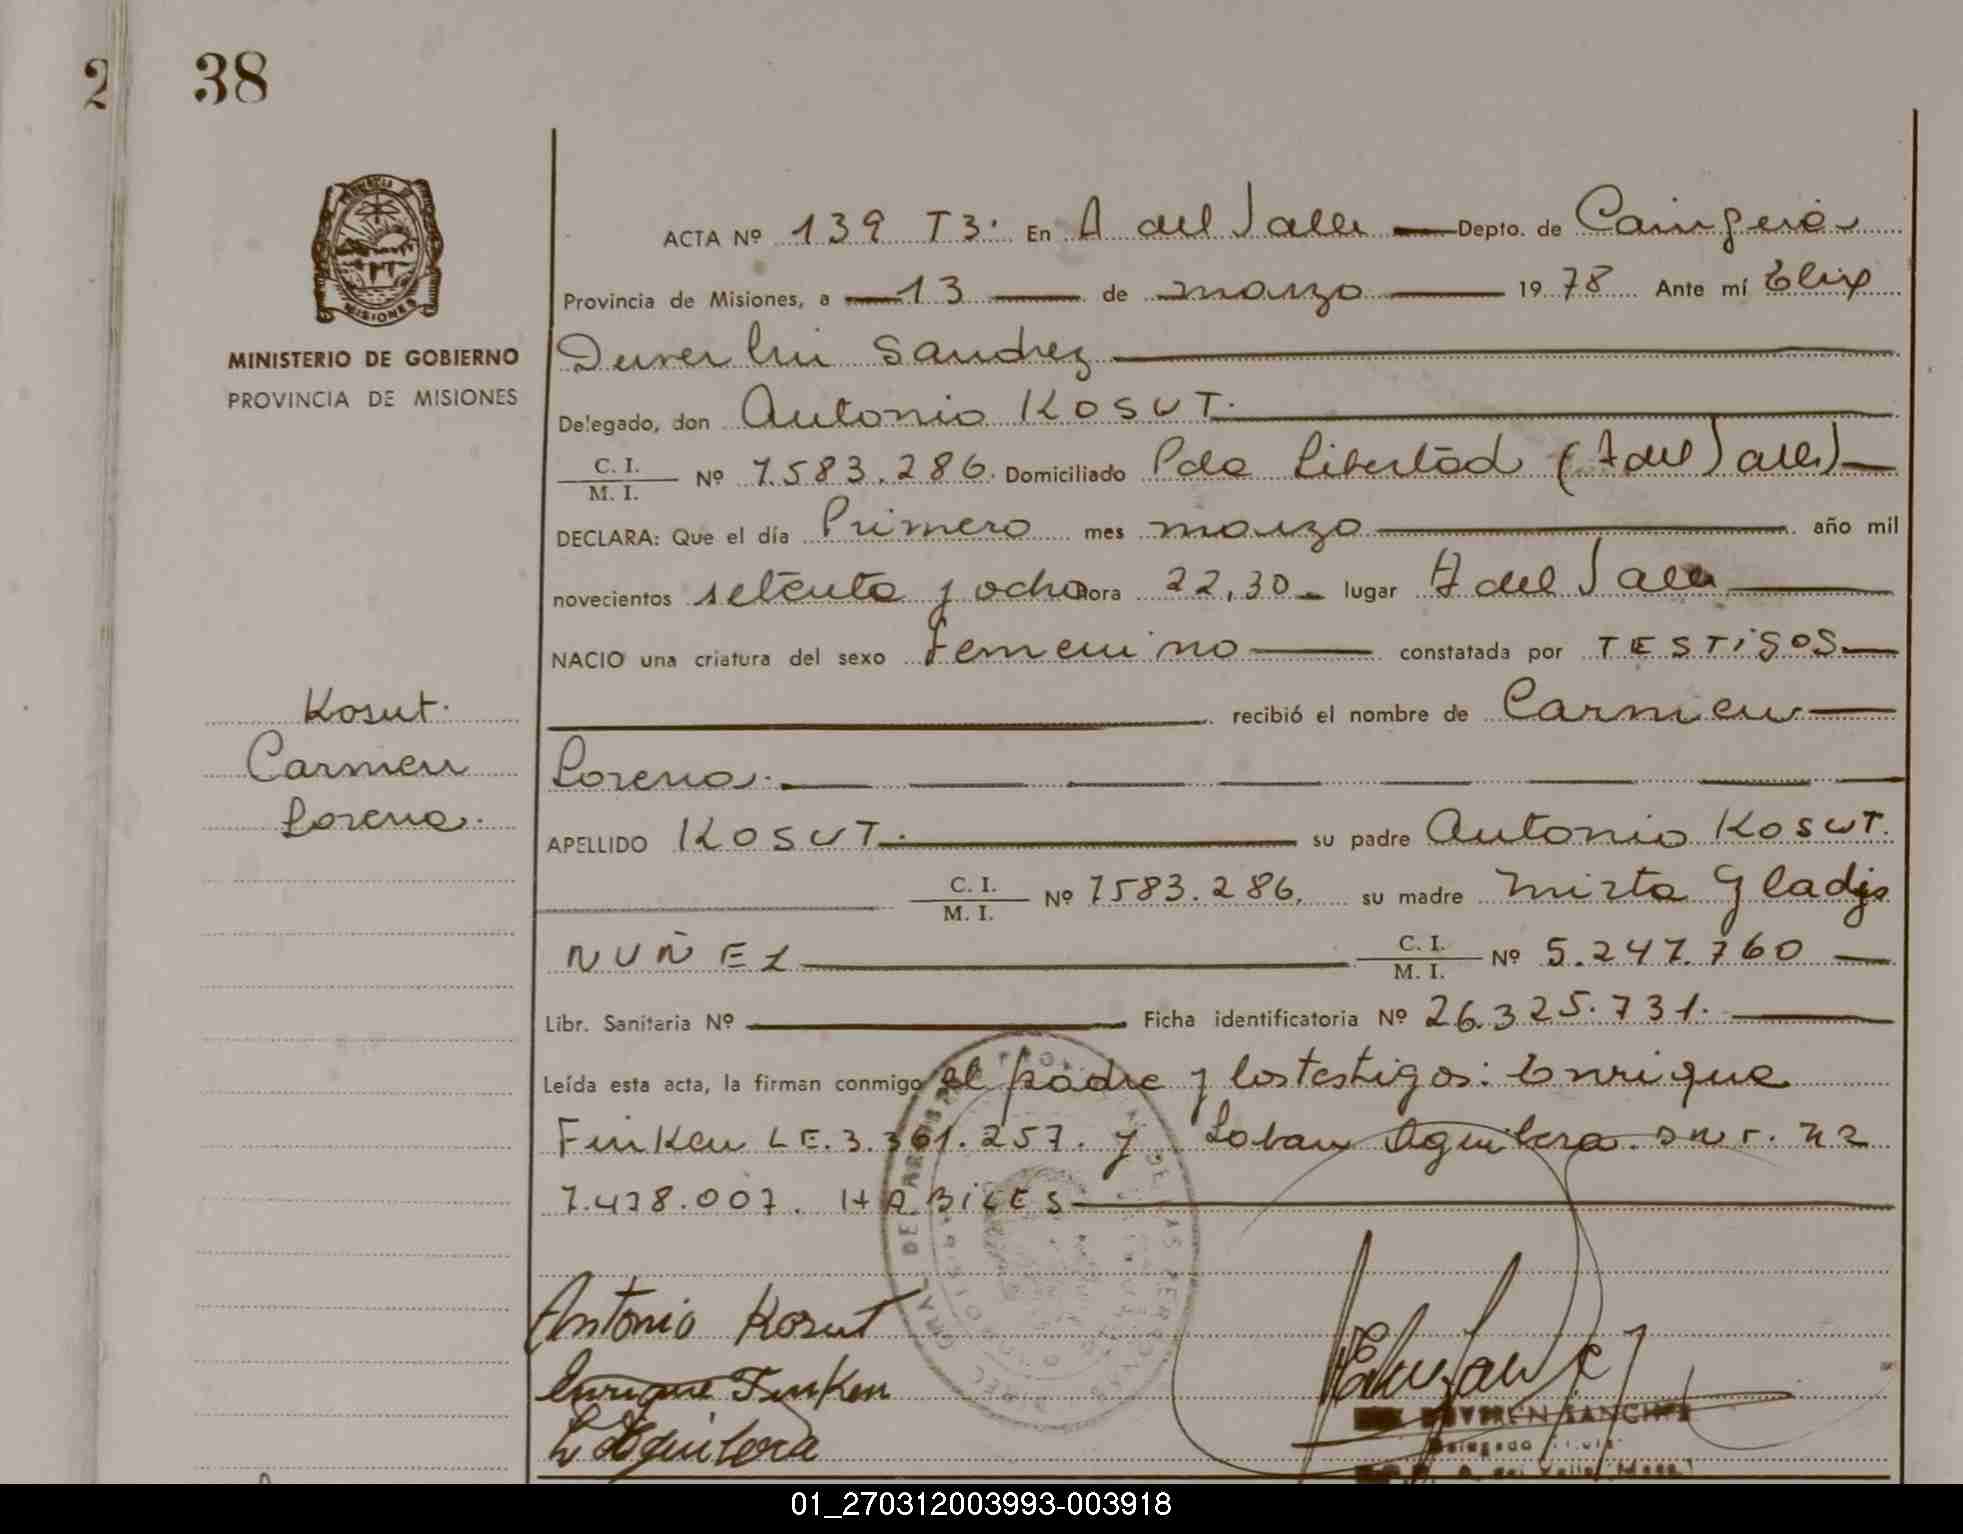 2 38
ACTA Nº 139 T3. En A del Valle Depto. de Cainguás
Provincia de Misiones, a 13 de marzo 1978 Ante mí Elix
Duverlin Sanchez
MINISTERIO DE GOBIERNO
PROVINCIA DE MISIONES
Delegado, don Antonio KOSUT.
C. I. / M. I. Nº 7.583.286. Domiciliado Pdo Libertad (A del Valle)
DECLARA: Que el día Primero mes marzo año mil
novecientos setenta y ocho hora 22,30 lugar A del Valle
NACIO una criatura del sexo Femenino constatada por TESTIGOS
recibió el nombre de Carmen
Lorena.
Kosut.
Carmen
Lorena.
APELLIDO KOSUT. su padre Antonio KOSUT.
C. I. / M. I. Nº 7583.286. su madre Mirta Gladys
NUÑEZ C. I. / M. I. Nº 5.247.760
Libr. Sanitaria Nº Ficha identificatoria Nº 26.325.731.
Leída esta acta, la firman conmigo el padre y los testigos: Enrique
Finken LE.3.361.257. y Aguilera
7.478.007. HABILES
Antonio Kosut
Enrique Finken
L Aguilera
SANCHEZ
Delegado
01_270312003993-003918